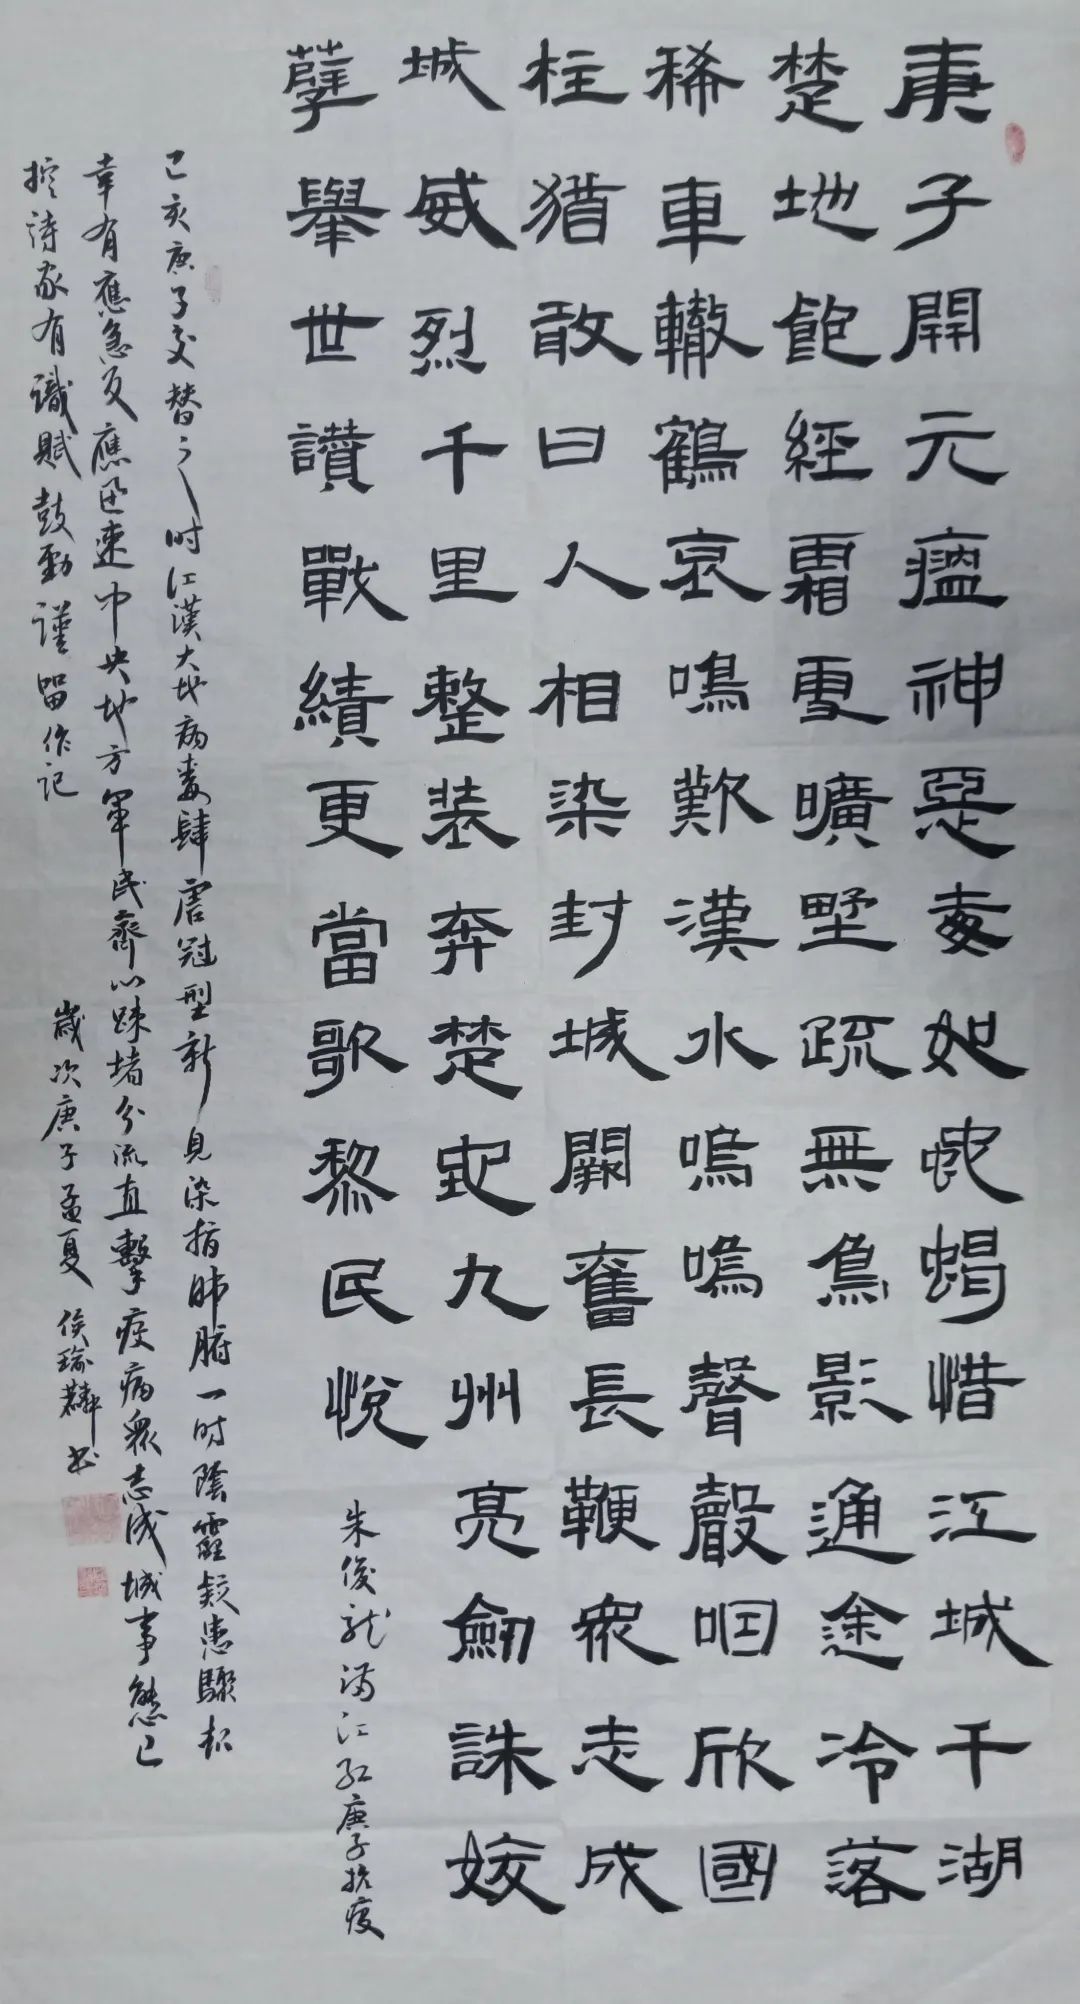 庚子開元瘟神惡毒如蛇蝎惜江城千湖
楚地飽經霜雪曠墅疏無鳥影通途冷落
稀車轍鶴哀鳴歎漢水嗚嗚聲聲咽欣國
柱猶敢曰人相染封城闕奮長鞭眾志成
城威烈千里整装奔楚欤九州亮劍誅妖
孽舉世讃戰績更當歌黎民悅
朱俊龍满江红庚子抗疫
己亥庚子交替之时江漢大地病毒肆虐冠型新見染指肺腑一时陰霾疑患驟起
幸有應急反應迅速中央地方軍民齊心疏堵分流直擊疫病眾志成城事態已
控诗家有識賦鼓勁謹留作記
歲次庚子孟夏侯瑜麟书